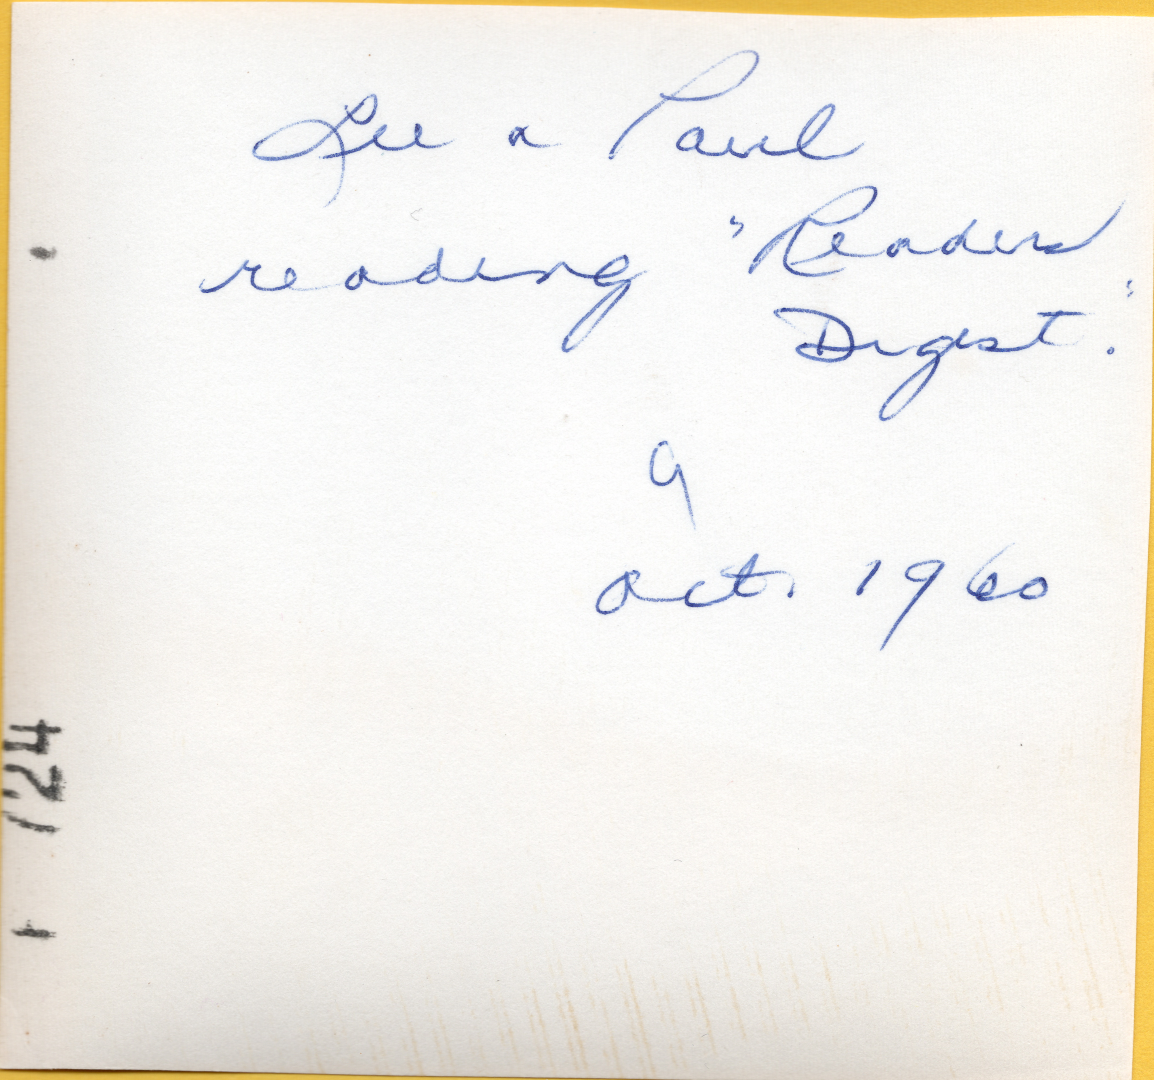 Lee & Paul
reading "Readers
Digest."
9
Oct. 1960
124
1